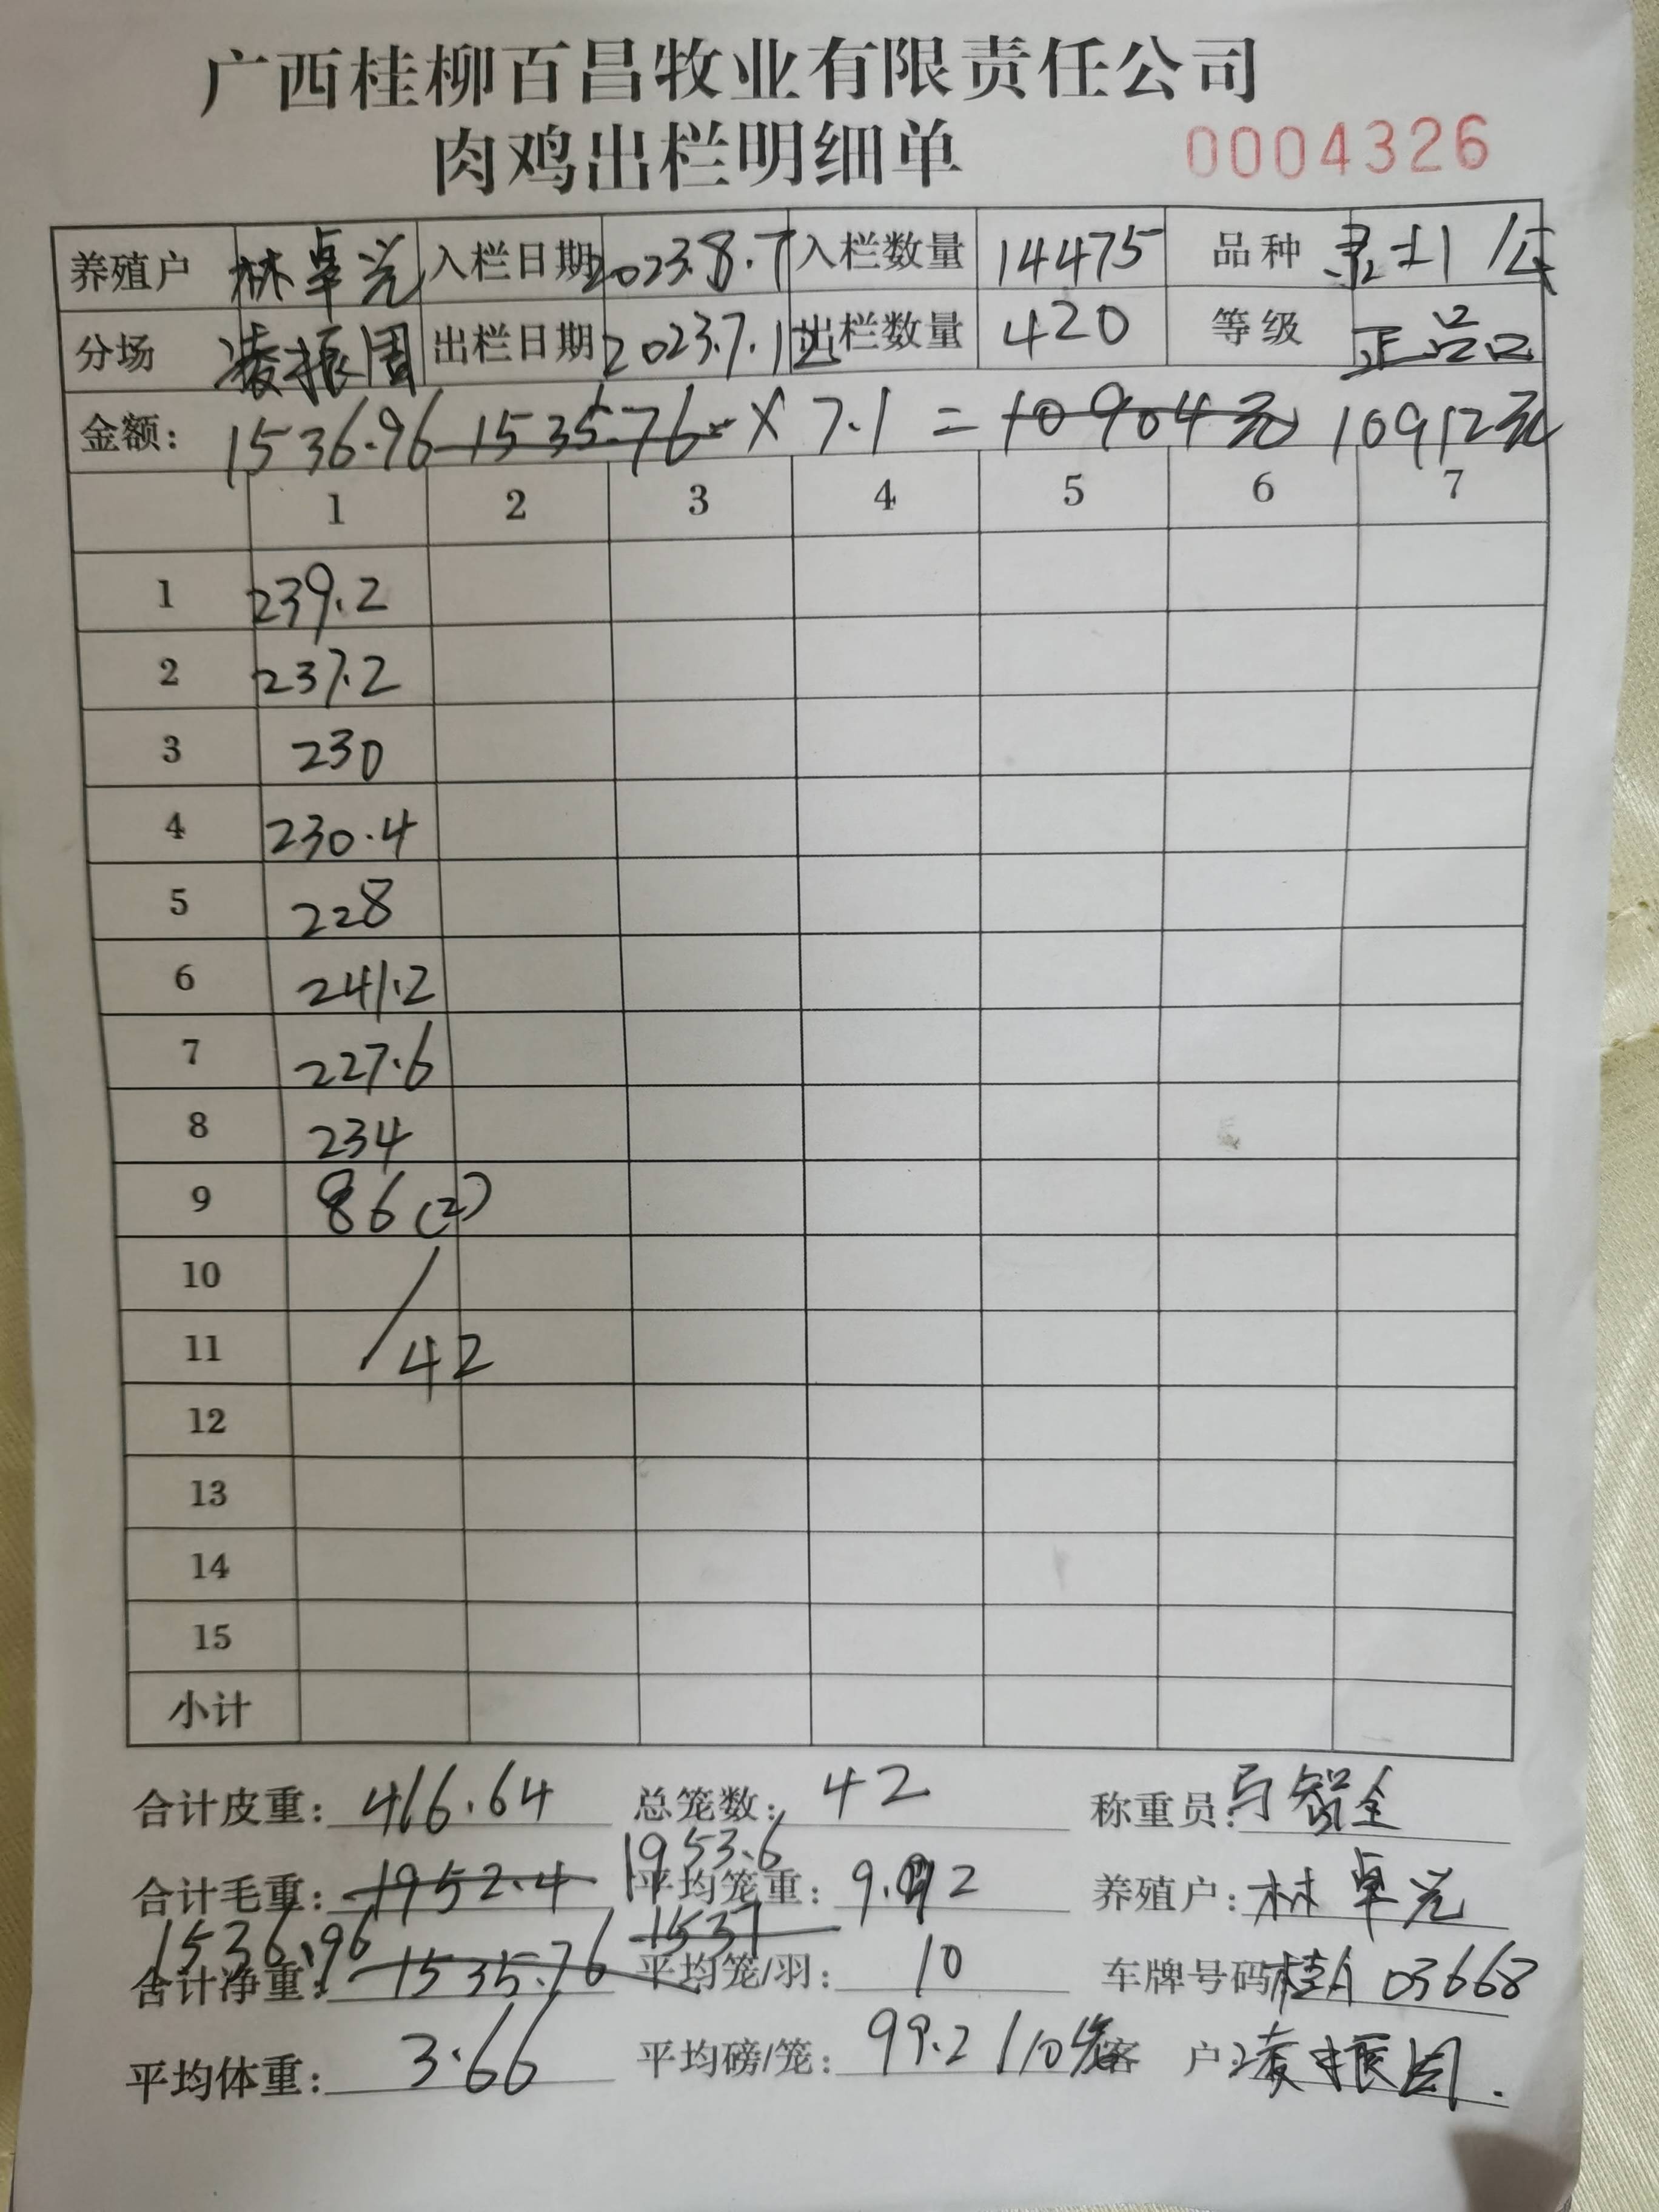 广西桂柳百昌牧业有限责任公司
肉鸡出栏明细单 0004326
养殖户 林卓光 入栏日期 2023.8.7 入栏数量 14475 品种 土1 公
分场 凌振周 出栏日期 2023.7.12 出栏数量 420 等级 正品
金额: 1536.96 1535.76 × 7.1 = 10904元 10912元
1 2 3 4 5 6 7
1 239.2
2 237.2
3 230
4 230.4
5 228
6 241.2
7 227.6
8 234
9 86(2)
10
11 /42
12
13
14
15
小计
合计皮重: 416.64 总笼数: 42 称重员: 智全
合计毛重: 1952.4 1953.6 平均笼重: 9.92 养殖户: 林卓光
合计净重: 1536.96 1535.76 1537 平均笼/羽: 10 车牌号码 桂A 03668
平均体重: 3.66 平均磅/笼: 99.2/10笼 客户: 凌振周.